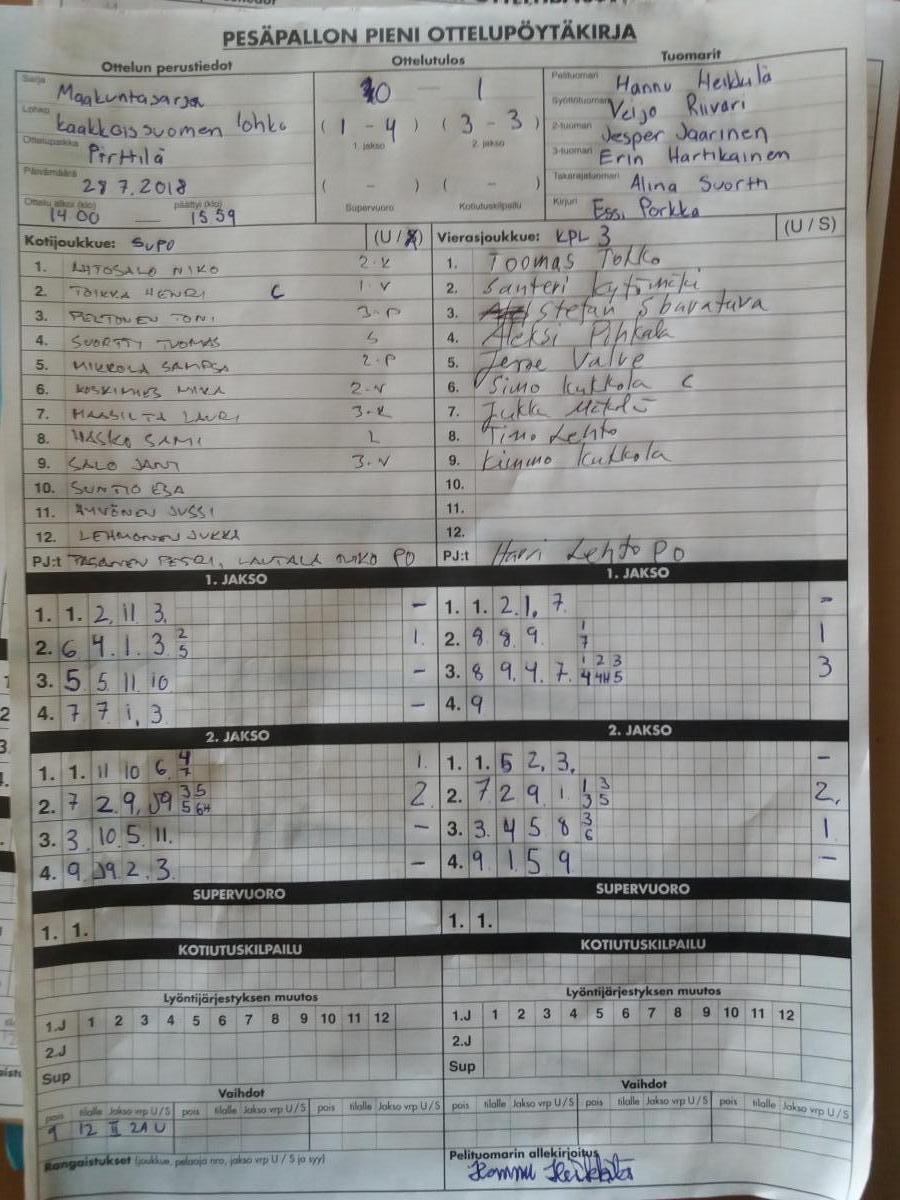 PESÄPALLON PIENI OTTELUPÖYTÄKIRJA
Ottelun perustiedot
Sarja Maakuntasarja
Lohko Kaakkois suomen lohko
Ottelupaikka Pirttilä
Päivämäärä 28 7.2018
Ottelu alkoi (klo) päättyi (klo)
14 00 — 15 59
Ottelutulos
0 — 1
( 1 - 4 ) ( 3 - 3 )
1. jakso 2. jakso
( - ) ( - )
Supervuoro Kotiutuskilpailu
Tuomarit
Pelituomari Hannu Heikkilä
Syöttötuomari Veijo Riivari
2-tuomari Jesper Jaarinen
3-tuomari Erin Hartikainen
Takarajatuomari Alina Suortti
Kirjuri Essi Porkka
Kotijoukkue: SUPO (U / S)
1. AHTOSALO NIKO 2-K
2. TOIKKA HENRI C 1-V
3. PELTONEN TONI 3-P
4. SUORTTI TUOMAS S
5. MIKKOLA SAMPSA 2-P
6. KOSKIMIES MIKA 2-V
7. LAURI 3-K
8. HASKO SAMI L
9. SALO JANI 3-V
10. SUNTIO ESA
11. ÄYVÖNEN JUSSI
12. LEHMONEN JUKKA
PJ:t TASANEN PETRI, LAUTALA NIKO PO
Vierasjoukkue: KPL 3 (U / S)
1. Toomas Tokko
2. Santeri Kytömäki
3. Stefan Sbuvatuva
4. Aleksi Pihkala
5. Jesse Valve
6. Simo Kukkola C
7. Jukka Mäkelä
8. Timo Lehto
9. Kimmo Kukkola
10.
11.
12.
PJ:t Harri Lehto PO
1. JAKSO
1. 1. 2, 11 3, -
2. 6 4. 1. 3 2 5 1.
3. 5 5 11 10 -
4. 7 7 1, 3 -
1. JAKSO
1. 1. 2. 1, 7. -
2. 8 8 9. 1 7 1
3. 8 9. 4. 7. 1 2 3 4 4H 5 3
4. 9
2. JAKSO
1. 1. 11 10 6 4 7 1.
2. 7 2 9, J9 3 5 5 6H 2
3. 3 10 5 11. -
4. 9 J9 2. 3. -
2. JAKSO
1. 1. 5 2, 3, -
2. 7 2 9 1. 1 3 3 5 2,
3. 3. 4 5 8 3 6 1
4. 9 1 5 9 -
SUPERVUORO
1. 1.
SUPERVUORO
1. 1.
KOTIUTUSKILPAILU
KOTIUTUSKILPAILU
Lyöntijärjestyksen muutos
1.J 1 2 3 4 5 6 7 8 9 10 11 12
2.J
Sup
Lyöntijärjestyksen muutos
1.J 1 2 3 4 5 6 7 8 9 10 11 12
2.J
Sup
Vaihdot
pois tilalle Jakso vrp U / S pois tilalle Jakso vrp U / S pois tilalle Jakso vrp U / S
9 12 II 2A U
Vaihdot
pois tilalle Jakso vrp U / S pois tilalle Jakso vrp U / S pois tilalle Jakso vrp U / S
Rangaistukset (joukkue, pelaaja nro, jakso vrp U / S ja syy)
Pelituomarin allekirjoitus
Hannu Heikkilä